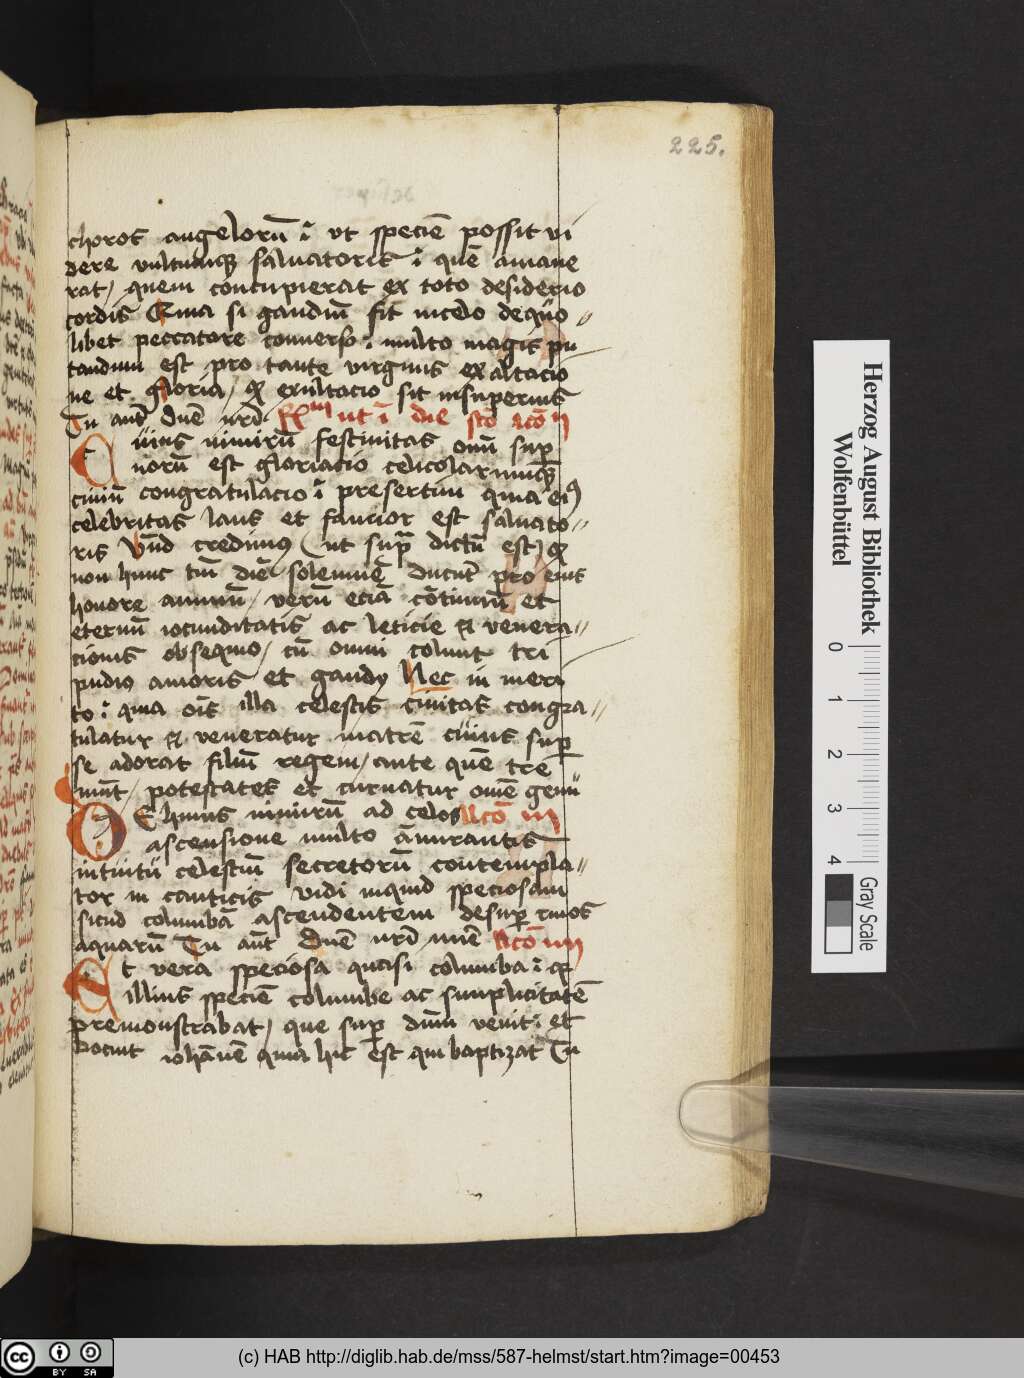 225.
choros angelorū ī ut speciē possit vi
dere vultumq; saluatoris ī quē amaue
rat / quem concupierat ex toto desiderio
cordis Quia si gaudiū fit in celo de quo
libet peccatore conuerso : multo magis pu
tandum est pro tante virginis exaltacio
ne et gloria / qđ exultacio sit in supernis
Tu aūt dn̄e nrī
ut ī die
Cuius nimirū festiuitas om̄ū sup
norū est gloriacio celicolarumq;
ciuiū congratulacio ī presertim quia eiꝰ
celebritas laus et fauor est saluato
ris Vn̄d credimꝰ ut supͣ dictū est qđ
non hunc tm̄ diē solemnē ducūt pro eius
honore annuū / verū eciā cōtinuū et
eternū iocunditatis ac leticie et venera
cionis obsequio / cū omni colunt tri
pudio amoris et gaudy Nec in meri
to : quia oīs illa celestis ciuitas congra
tulatur et veneratur matrē cuius sup
se adorat filiū regem / ante quē tre
munt / potestates et curuatur om̄e genu
De huius nimirū ad celos lcō iii
ascensione multo āmirantis
intuitu celestiū secretorū contempla
tor in canticis vidi inquid speciosam
sicud columbā ascendentem desup riuos
aquarū Tu aūt dn̄e nrī mīe lcō iiii
Et vera speciosa quasi columba ī qđ
illius speciē columbe ac simplicitatē
premonstrabat / que sup dn̄m venit : et
docuit iohānē quia hic est qui baptizat Tu
Herzog August Bibliothek
Wolfenbüttel
0 1 2 3 4
Gray Scale
cc BY SA
(c) HAB http://diglib.hab.de/mss/587-helmst/start.htm?image=00453